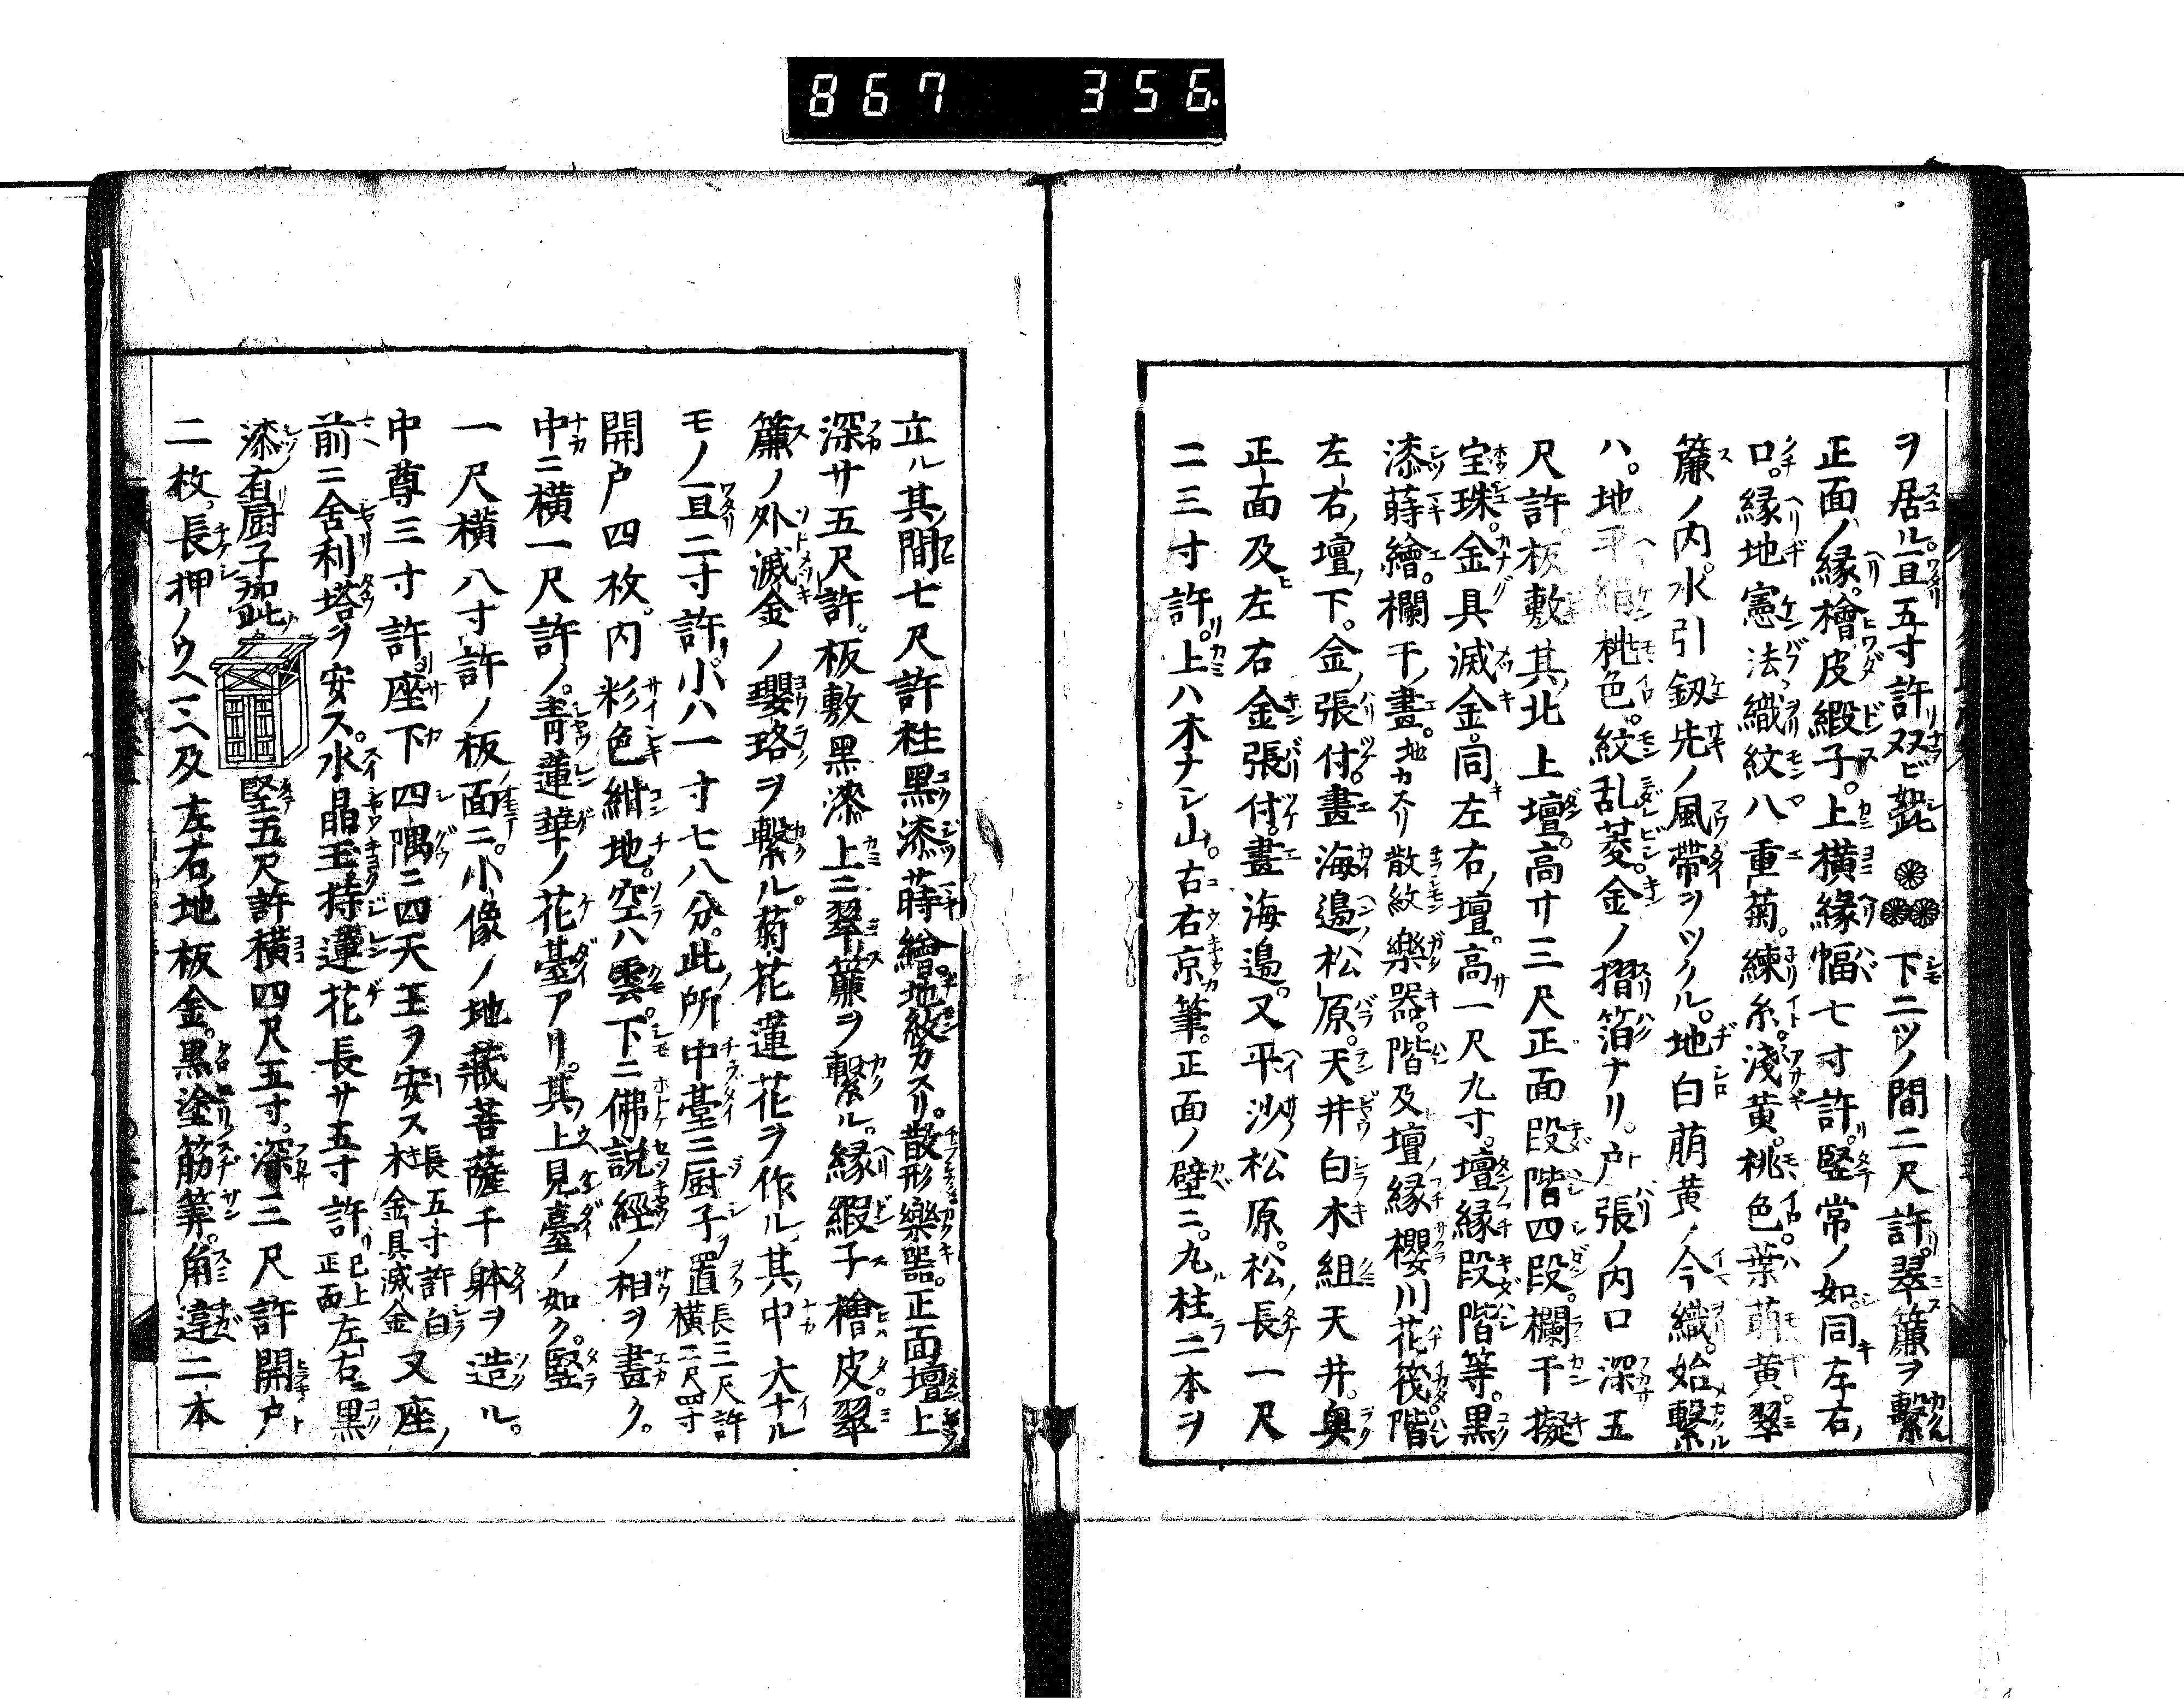 867 356
ヲ居ル。亘五寸許双ビ如此下二ツノ間二尺許。翠簾ヲ繋
正面ノ縁。檜皮緞子。上横緣幅七寸許。竪常ノ如。同左右ノ
口。縁地憲法織紋八重菊。練糸。淺黄。桃色。葉萌黄。翠
簾ノ内。水引釼先ノ風帶ヲツクル。地白萌黄ノ今織。始繋
ハ。地桃色。紋乱菱。金ノ摺箔ナリ。戸張ノ内口深五
尺許板敷其北上壇。高サ三尺正面段階四段。欄干擬
宝珠。金具滅金。同左右ノ壇。高一尺九寸。壇縁段階等。黒
漆蒔繪。欄干ノ畫。地カスリ散紋樂器。階及壇縁櫻川花筏階
左右ノ壇ノ下。金ノ張付。畫海邉松原。天井白木組天井。奥
正面及左右金張付。畫海邉。又平沙松原。松ノ長一尺
二三寸許。上ハ木ナシ山。古右京筆。正面ノ壁ニ。丸柱二本ヲ
立ル其間七尺許柱黒漆蒔繪。地紋カスリ。散形樂器。正面壇上
深サ五尺許。板敷黒漆上ニ翠簾ヲ繋ル。縁緞子檜皮翠
簾ノ外滅金ノ瓔珞ヲ繋ル。菊花蓮花ヲ作ル其中大ナル
モノ亘二寸許。小ハ一寸七八分。此所中臺ニ厨子ヲ置長三尺許横二尺四寸
開戸四枚。内彩色紺地。空ハ雲。下ニ佛説經ノ相ヲ畫ク。
中ニ横一尺許ノ。青蓮華ノ花臺アリ。其上見臺ノ如ク。竪
一尺横八寸許ノ板面ニ。小像ノ地藏菩薩千躰ヲ造ル。
中尊三寸許座下四隅ニ四天王ヲ安ス長五寸許白木金具滅金又座ノ
前ニ舍利塔ヲ安ス。水晶玉持蓮花長サ五寸許已上正面左右ニ黒
漆有厨子如此竪五尺許横四尺五寸。深三尺許開戸
二枚。長押ノウヘ三ヘ及左右地板金。黒塗筋筭。角違二本